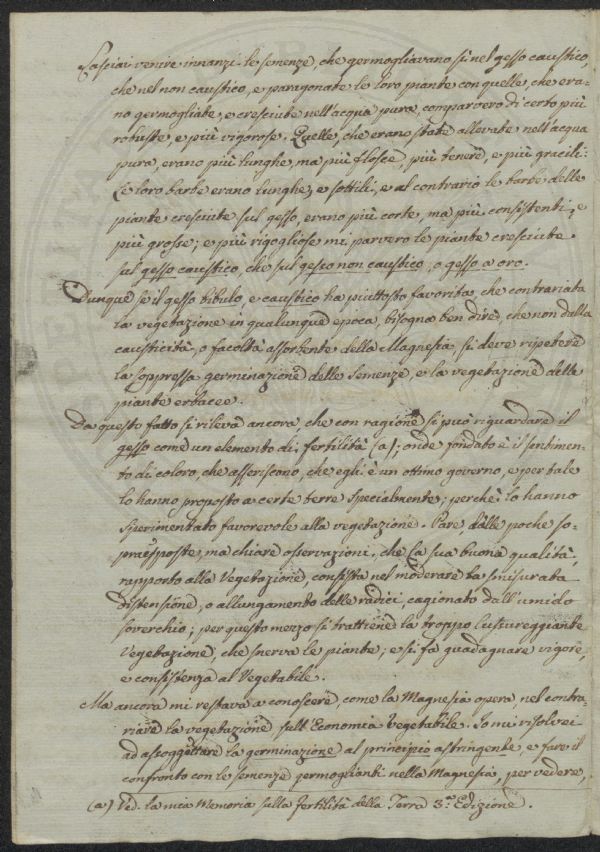 Lasciai venire innanzi le semenze, che germogliavano sì nel gesso caustico,
che nel non caustico, e paragonate le loro piante con quelle, che era-
no germogliate, e cresciute nell'acqua pura, comparvero di certo più
robuste, e più vigorose. Quelle, che erano state allevate nell'acqua
pura, erano più lunghe, ma più flosce, più tenere, e più gracili:
Le loro barbe erano lunghe, e sottili, e al contrario le barbe delle
piante cresciute sul gesso, erano più corte, ma più consistenti, e
più grosse; e più rigogliose mi parvero le piante cresciute
sul gesso caustico, che sul gesso non caustico, o gesso a oro.
Dunque se il gesso bibulo, e caustico ha piuttosto favorita, che contrariata
la vegetazione in qualunque epoca, bisogna ben dire, che non dalla
causticità, o facoltà assorbente della Magnesia si deve ripetere
la soppressa germinazione delle Semenze, e la vegetazione delle
piante erbacee.
Da questo fatto si rileva ancora, che con ragione si può riguardare il
gesso come un elemento di fertilità (a); onde fondato è il sentimen-
to di coloro, che asseriscono, che egli è un ottimo governo, e per tale
lo hanno proposto a certe terre specialmente; perchè lo hanno
sperimentato favorevole alla vegetazione. Pare, dalle poche so-
praesposte, ma chiare osservazioni, che la sua buona qualità,
rapporto alla Vegetazione, consista nel moderare la smisurata
distensione, o allungamento delle radici, cagionato dall'umido
soverchio; per questo mezzo si trattiene la troppo lussureggiante
Vegetazione, che snerva le piante; e si fa guadagnare vigore,
e consistenza al Vegetabile.
Ma ancora mi restava a conoscere, come la Magnesia opera, nel contra-
riare la vegetazione sull'Economia Vegetabile. Io mi risolvei
ad assoggettare la germinazione al principio astringente, e fare il
confronto con le semenze germoglianti nella Magnesia, per vedere,
(a) Ved. la mia Memoria sulla fertilità della Terra 3.ª Edizione.